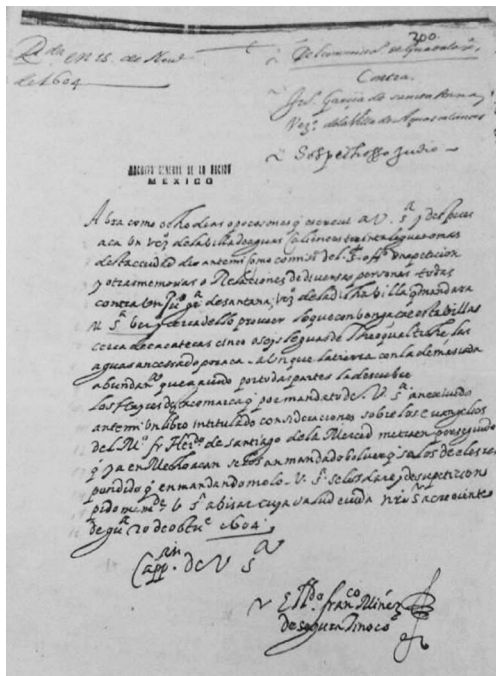 300.
Rda en 25. de Nou.
de 1604
Del comiss. de Guadalax.
Contra.
Jul. Garcia de santa Anna
Vezº. de la Villa de Aguascalientes
Sospechosso Judio
ARCHIVO GENERAL DE LA NACION
MEXICO
Abra como ocho dias o poco mas q escreui a V. Sª y despues
aca un vezº de la billa de aguas Calientes treinta leguas mas
desta ciudad dio ante mi como comisº del Sto offº una peticion
y otras memorias o Relaciones de diuersas personas todas
contra un Juº gª de santana, vezº de la dicha billa q mandara
V. Sª ber y cerca dello proueer lo que conbenga
cerca de cacatecas cinco o seys leguas de
las
aguas an cessado por aca aunque la tierra con la demasiada
abundanª que a auido por todas partes
los de esta comarca q por mandato de V. Sª an exiuido
ante mi un libro intitulado consideraciones sobre los euangelios
del Mº fr Herdº de santiago de la Merced me traen perseguido
q ya en Mechoacan se los an mandado boluer
q en mandandomelo V. Sª se los dare y de su peticion
V Sª abisar cuya salud cuida nrº Sr
de guª 20 de otue 1604.
Capp.an de V Sª
El Ldo. franco Minez
de segura Tinoco